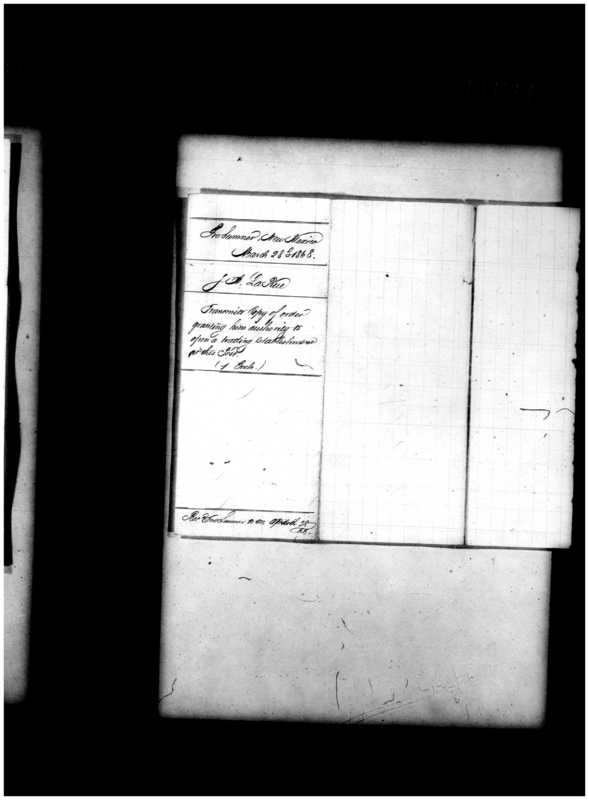 Ft Sumner, New Mexico
March 28th 1868.
J. A. La Rue
Transmits Copy of order
granting him authority to
open a trading Establishment
at this Post
(1 Enclo.)
Rec Ft Sumner N M. April 28
/68.